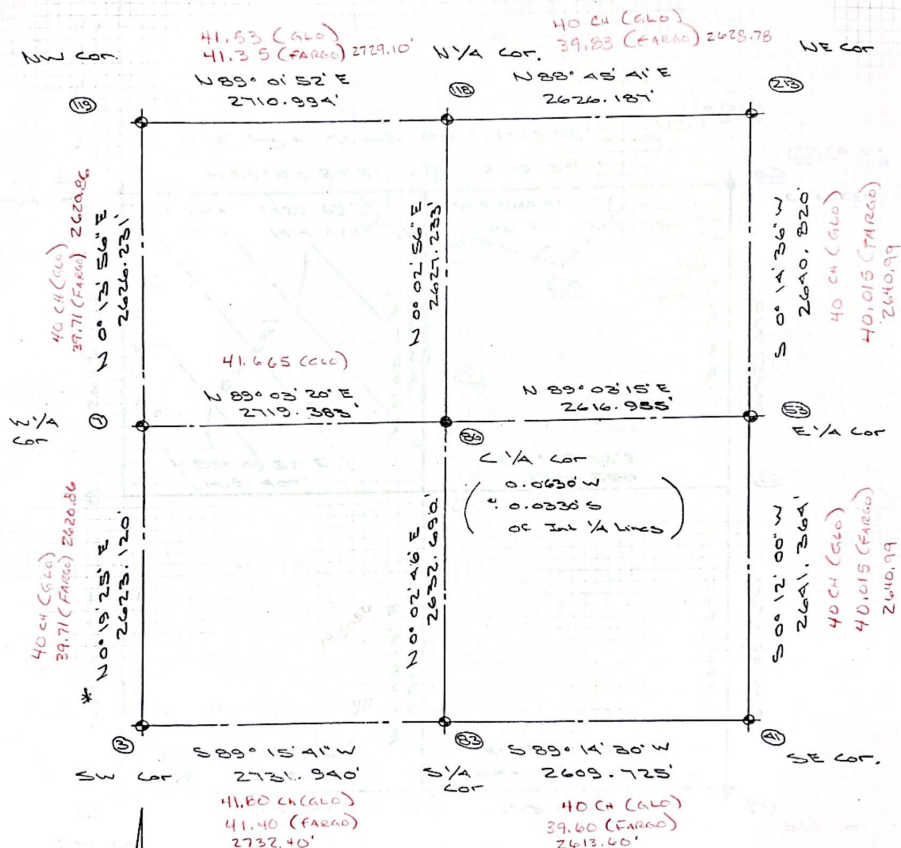 NW Cor.
41.53 (GLO)
41.35 (FARGO) 2729.10'
N 89° 01' 52" E
2710.994'
N 1/4 Cor.
40 CH (GLO)
39.83 (FARGO) 2628.78
N 88° 45' 41" E
2626.187'
NE Cor
119
118
213
40 CH (GLO)
39.71 (FARGO) 2620.86
N 0° 13' 56" E
2626.231'
N 0° 02' 56" E
2627.233'
S 0° 14' 36" W
2640.820'
40 CH (GLO)
40.015 (FARGO)
2640.99
41.665 (GLO)
N 89° 03' 20" E
2719.383'
N 89° 03' 15" E
2616.955'
W 1/4
Cor
1
86
53
E 1/4 Cor
C 1/4 Cor
0.0630' W
0.0330' S
OF Int 1/4 Lines
40 CH (GLO)
39.71 (FARGO) 2620.86
* N 0° 19' 25" E
2623.120'
N 0° 02' 46" E
2632.690'
S 0° 12' 00" W
2641.364'
40 CH (GLO)
40.015 (FARGO)
2640.99
3
83
41
SW Cor.
S 89° 15' 41" W
2731.940'
S 1/4
Cor
S 89° 14' 30" W
2609.725'
SE Cor.
41.80 CH (GLO)
41.40 (FARGO)
2732.40'
40 CH (GLO)
39.60 (FARGO)
2613.60'